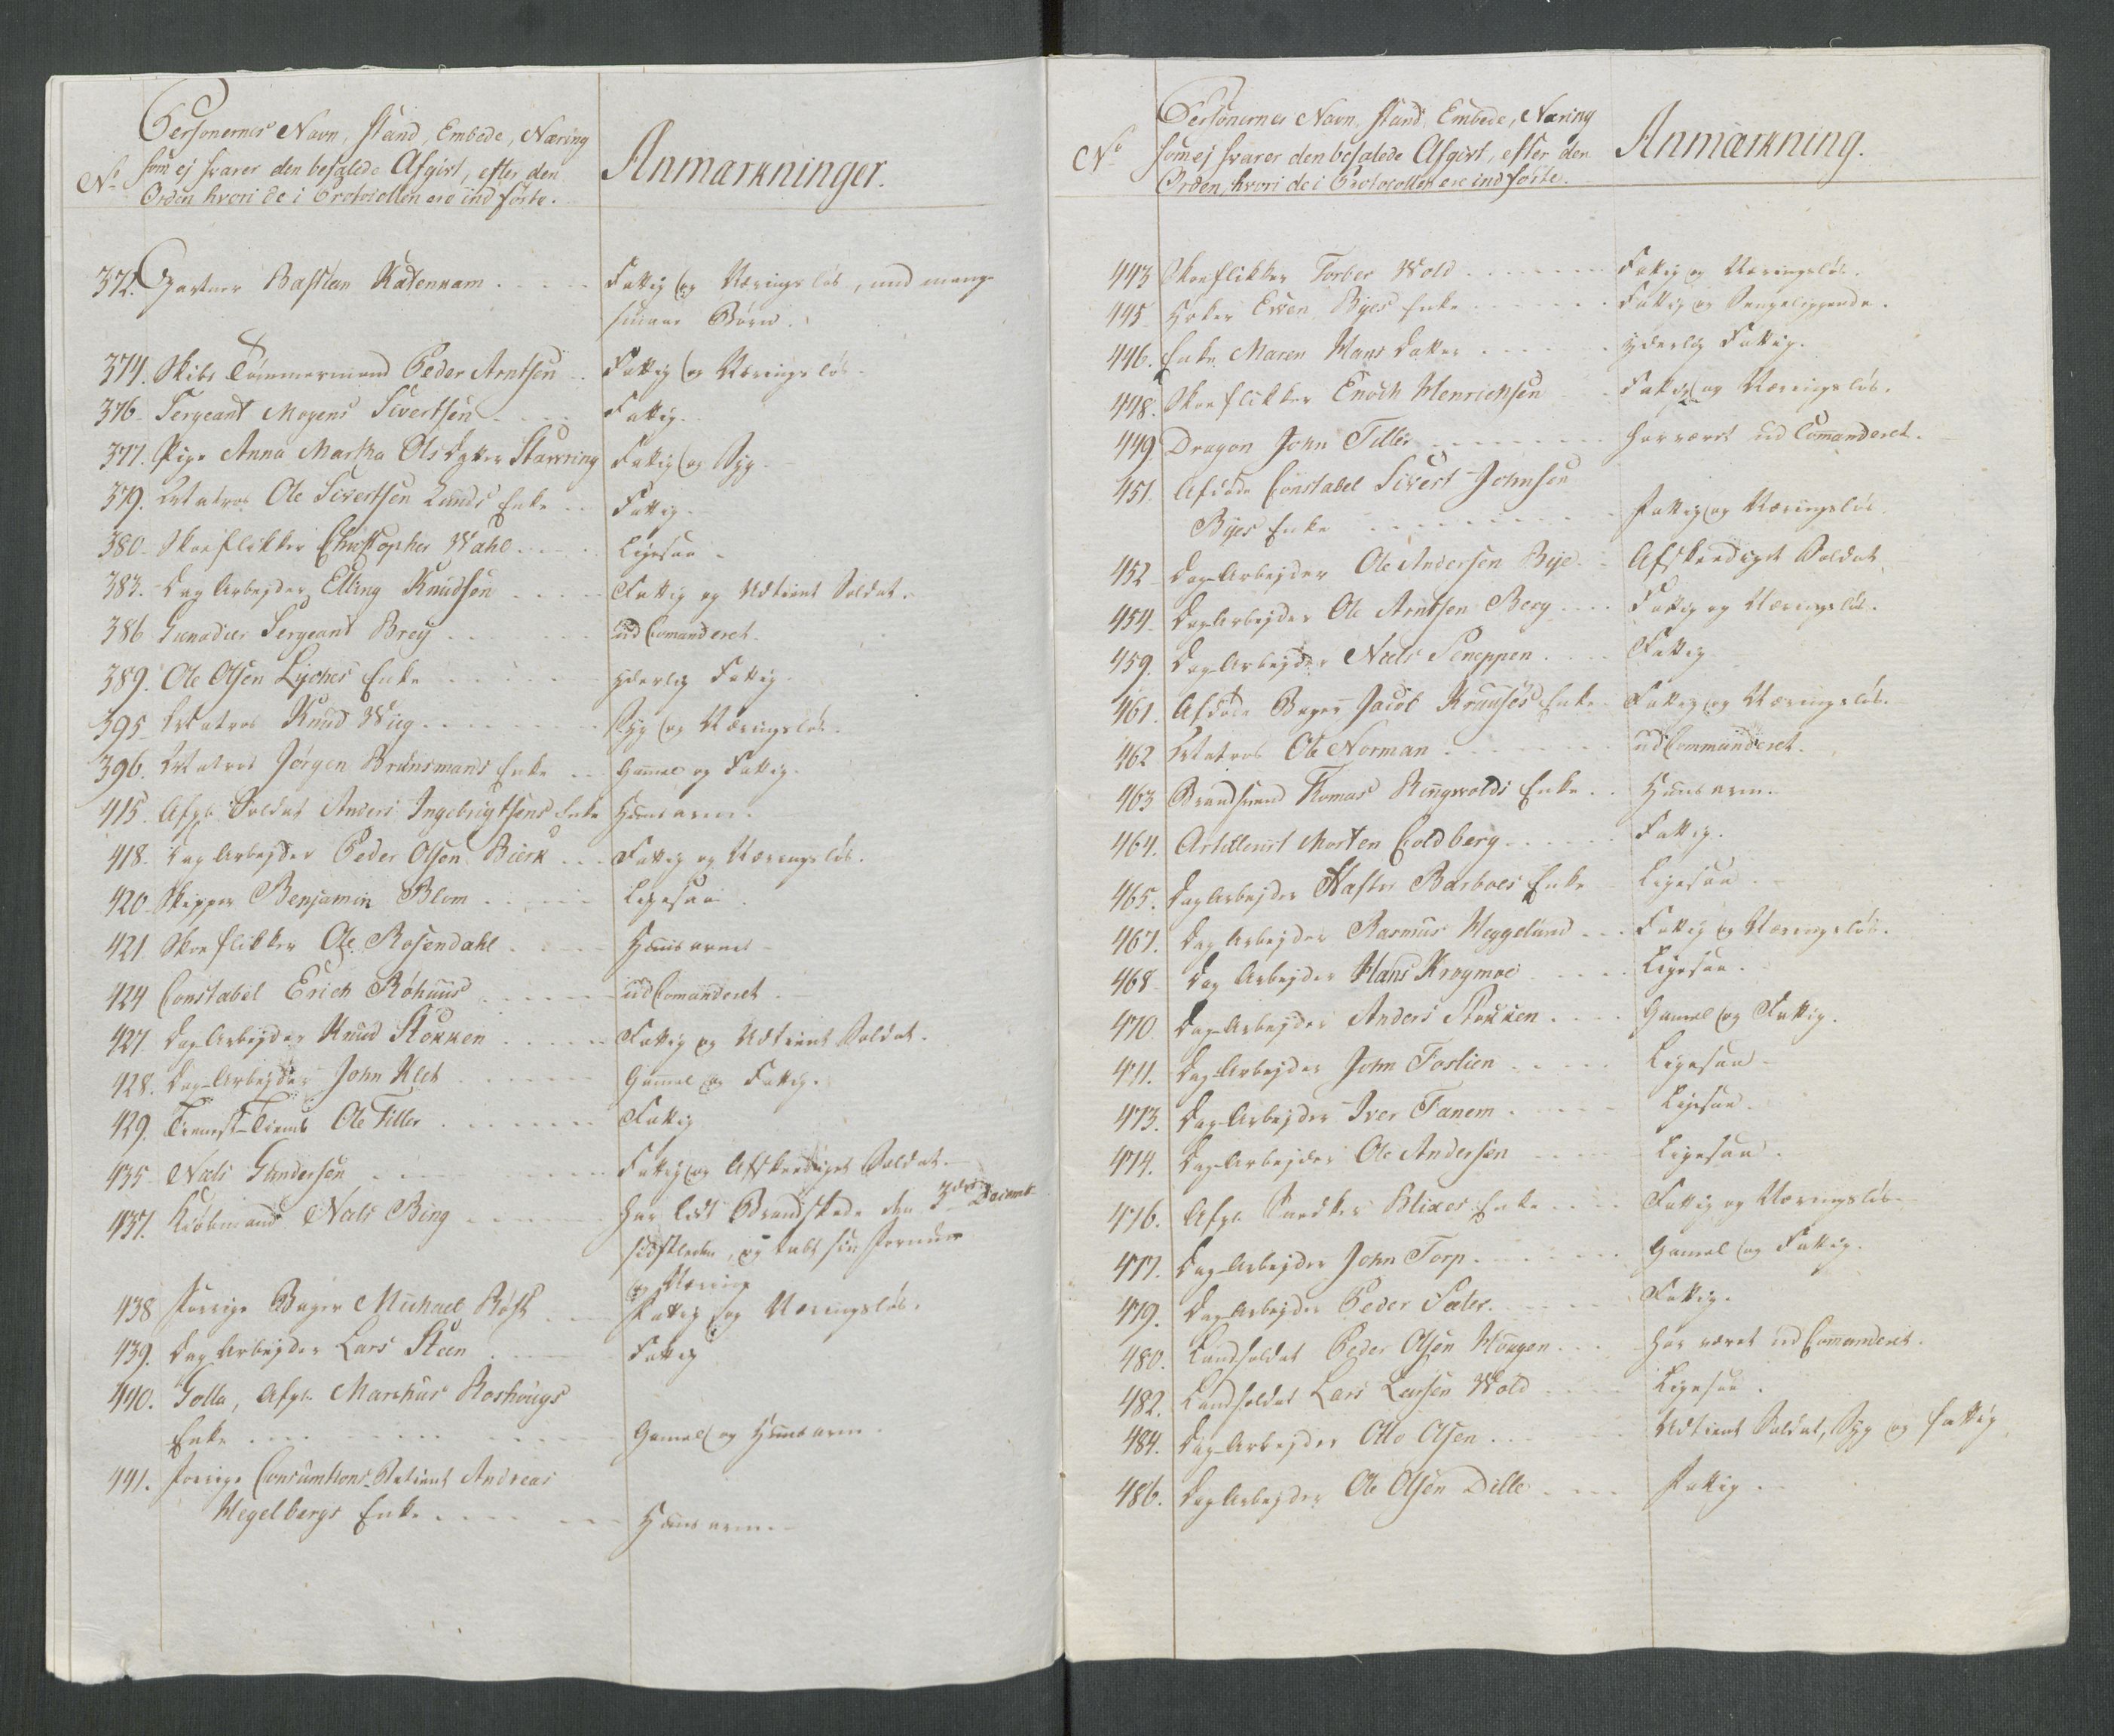 No
Personernes Navn, stand, Embede, Næring
som ej svarer den befalede Afgivt, efter den
Orden hvori de i Protocollen ere indførte.
Anmærkninger.
372. Gartner Bastian Katennam . . . . Fattig og Næringsløs, med mange
smaae Børn.
374. Skibs Tømmermand Peder Arntsen . . Fattig og Næringsløs.
376. Sergeant Mogens Sivertsen . . . . Fattig.
377. Pige Anna Martha Olsdatter Stavring Fattig og Syg.
379. Matros Ole Sivertsen Lunds Enke . . Fattig.
380. Skoeflikker Christopher Wahl . . . . Ligesaa.
383. Dag Arbejder Elling Knudsen . . . . Fattig og Udtient Soldat.
386. Grenadeer Sergeant Brey . . . . ud Comanderet.
389. Ole Olsen Lyches Enke . . . . yderlig Fattig.
395. Matros Knud Wiig . . . . Syg og Næringsløs.
396. Matros Jørgen Brunsmands Enke . . Gammel og Fattig.
415. Afg: Soldat Anders Ingebrigtsens Enke Huusarm.
418. Dag Arbejder Peder Olsen Bierk . . . Fattig og Næringsløs.
420. Skipper Benjamin Blom . . . . Ligesaa.
421. Skoeflikker Ole Rosendahl . . . . Huusarm.
424 Constabel Erich Røhuus . . . . ud Comanderet.
427. Dag-Arbejder Knud Stokken . . . . Fattig og Udtient Soldat.
428. Dag-Arbejder John Klet . . . . Gammel og Fattig.
429. Tienest-Tiente Ole Tiller . . . . Fattig
435. Niels Gundersen . . . . Fattig og Afskediget Soldat.
437. Kiøbmand Niels Bing . . . . Har lidt Brandskade den 3die Decemb
sidstleden, og tabt sin Formue
og Næring
438 forrige Bager Michael Røst . . . . Fattig og Næringsløs.
439. Dag Arbejder Lars Steen . . . . Fattig
440. Golla, Afg: Marchus Roshougs
Enke . . . . Gamel og Huusarm.
441. forrige Consumtions-Betient Andreas
Hegelbergs Enke . . . . Huusarm.
No
Personernes Navn, stand, Embede, Næring
som ej svarer den befalede Afgivt, efter den
Orden, hvori de i Protocollen ere indførte.
Anmærkning.
443 Skoeflikker Torber Wold . . . . Fattig og Næringsløs.
445. Høker Ewen Byes Enke . . . . Fattig og Sengeliggende.
446. Enke Maren Hans Datter . . . . yderlig Fattig.
448. Skoeflikker Enoch Henrichsen . . Fattig og Næringsløs.
449. Dragon John Tiller . . . . har været ud Comanderet.
451. Afdøde Constabel Sivert Johnsen
Byes Enke . . . . Fattig og Næringsløs.
452. Dag-Arbejder Ole Andersen Bye . . Afskediget Soldat.
454. Dag-Arbejder Ole Arntsen Berg . . . . Fattig og Næringsløs.
459. Dag-Arbejder Niels Seneppen . . . . Fattig
461. Afdøde Bager Jacob Kruuses Enke . Fattig og Næringsløs.
462 Matros Ole Norman . . . . ud Commanderet.
463 Brandsvend Thomas Ringwolds Enke . . Huusarm.
464. Artillerist Morten Coldberg . . . . Fattig.
465. Dag Arbejder Hafter Barboes Enke Ligesaa.
467. Dag Arbejder Rasmus Heggelund . . . Fattig og Næringsløs.
468. Dag Arbejder Hans Krogmoe . . . . Ligesaa.
470. Dag-Arbejder Anders Stokken . . . . Gamel og Fattig.
471. Dag-Arbejder John Foslien . . . . Ligesaa
473. Dag-Arbejder Iver Tanem . . . . Ligesaa.
474. Dag-Arbejder Ole Andersen . . . . Ligesaa.
476. Afg: Snedker Blixes Enke . . . . Fattig og Næringsløs.
477. Dag-Arbejder John Torp . . . . Gamel og Fattig.
479. Dag-Arbejder Peder Sæter . . . . Fattig.
480. Landsoldat Peder Olsen Hougen . . . har været ud Comanderet.
482. Landsoldat Lars Larsen Wold . . . . Ligesaa.
484. Dag-Arbejder Otto Olsen . . . . Udtient Soldat, Syg og fattig
486. Dag Arbejder Ole Olsen Dille . . . . Fattig.